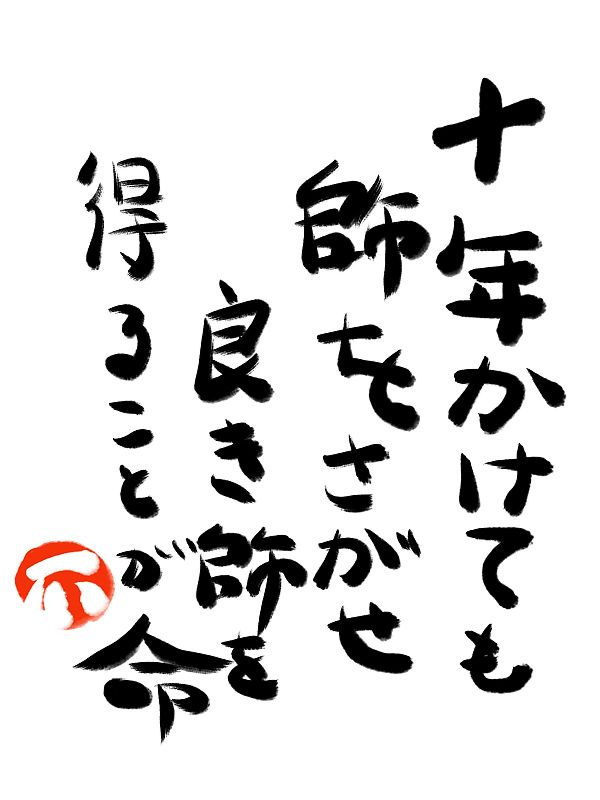 十年かけても
師をさがせ
良き師を
得ることが命